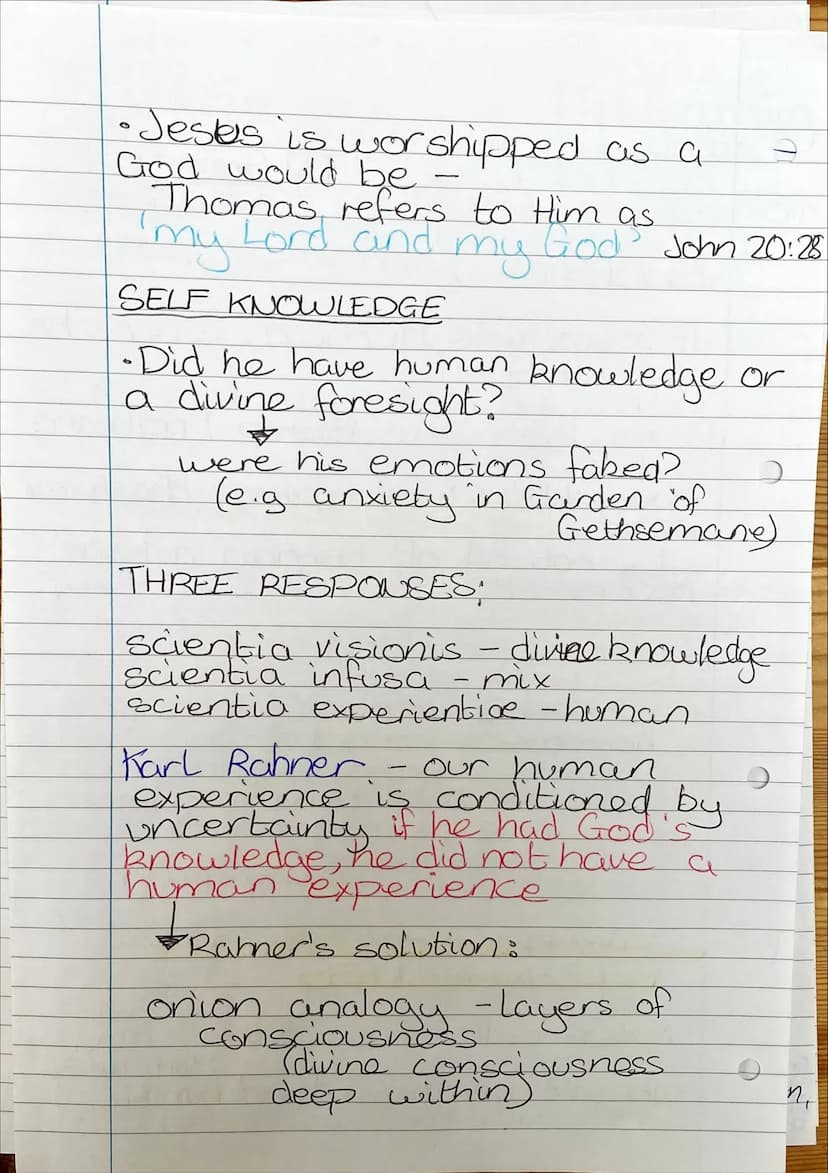 • Jesus is worshipped as a
God would be –
Thomas refers to Him as
'my Lord and my God' John 20:28
SELF KNOWLEDGE
• Did he have human knowledge or
a divine foresight?
were his emotions faked?
(e.g anxiety in Garden of
Gethsemane)
THREE RESPONSES:
scientia visionis – divine knowledge
scientia infusa – mix
scientia experientiae – human
Karl Rahner – our human
experience is conditioned by
uncertainty if he had God's
knowledge, he did not have a
human experience
Rahner's solution:
onion analogy – Layers of
consciousness
(divine consciousness
deep within)
n,